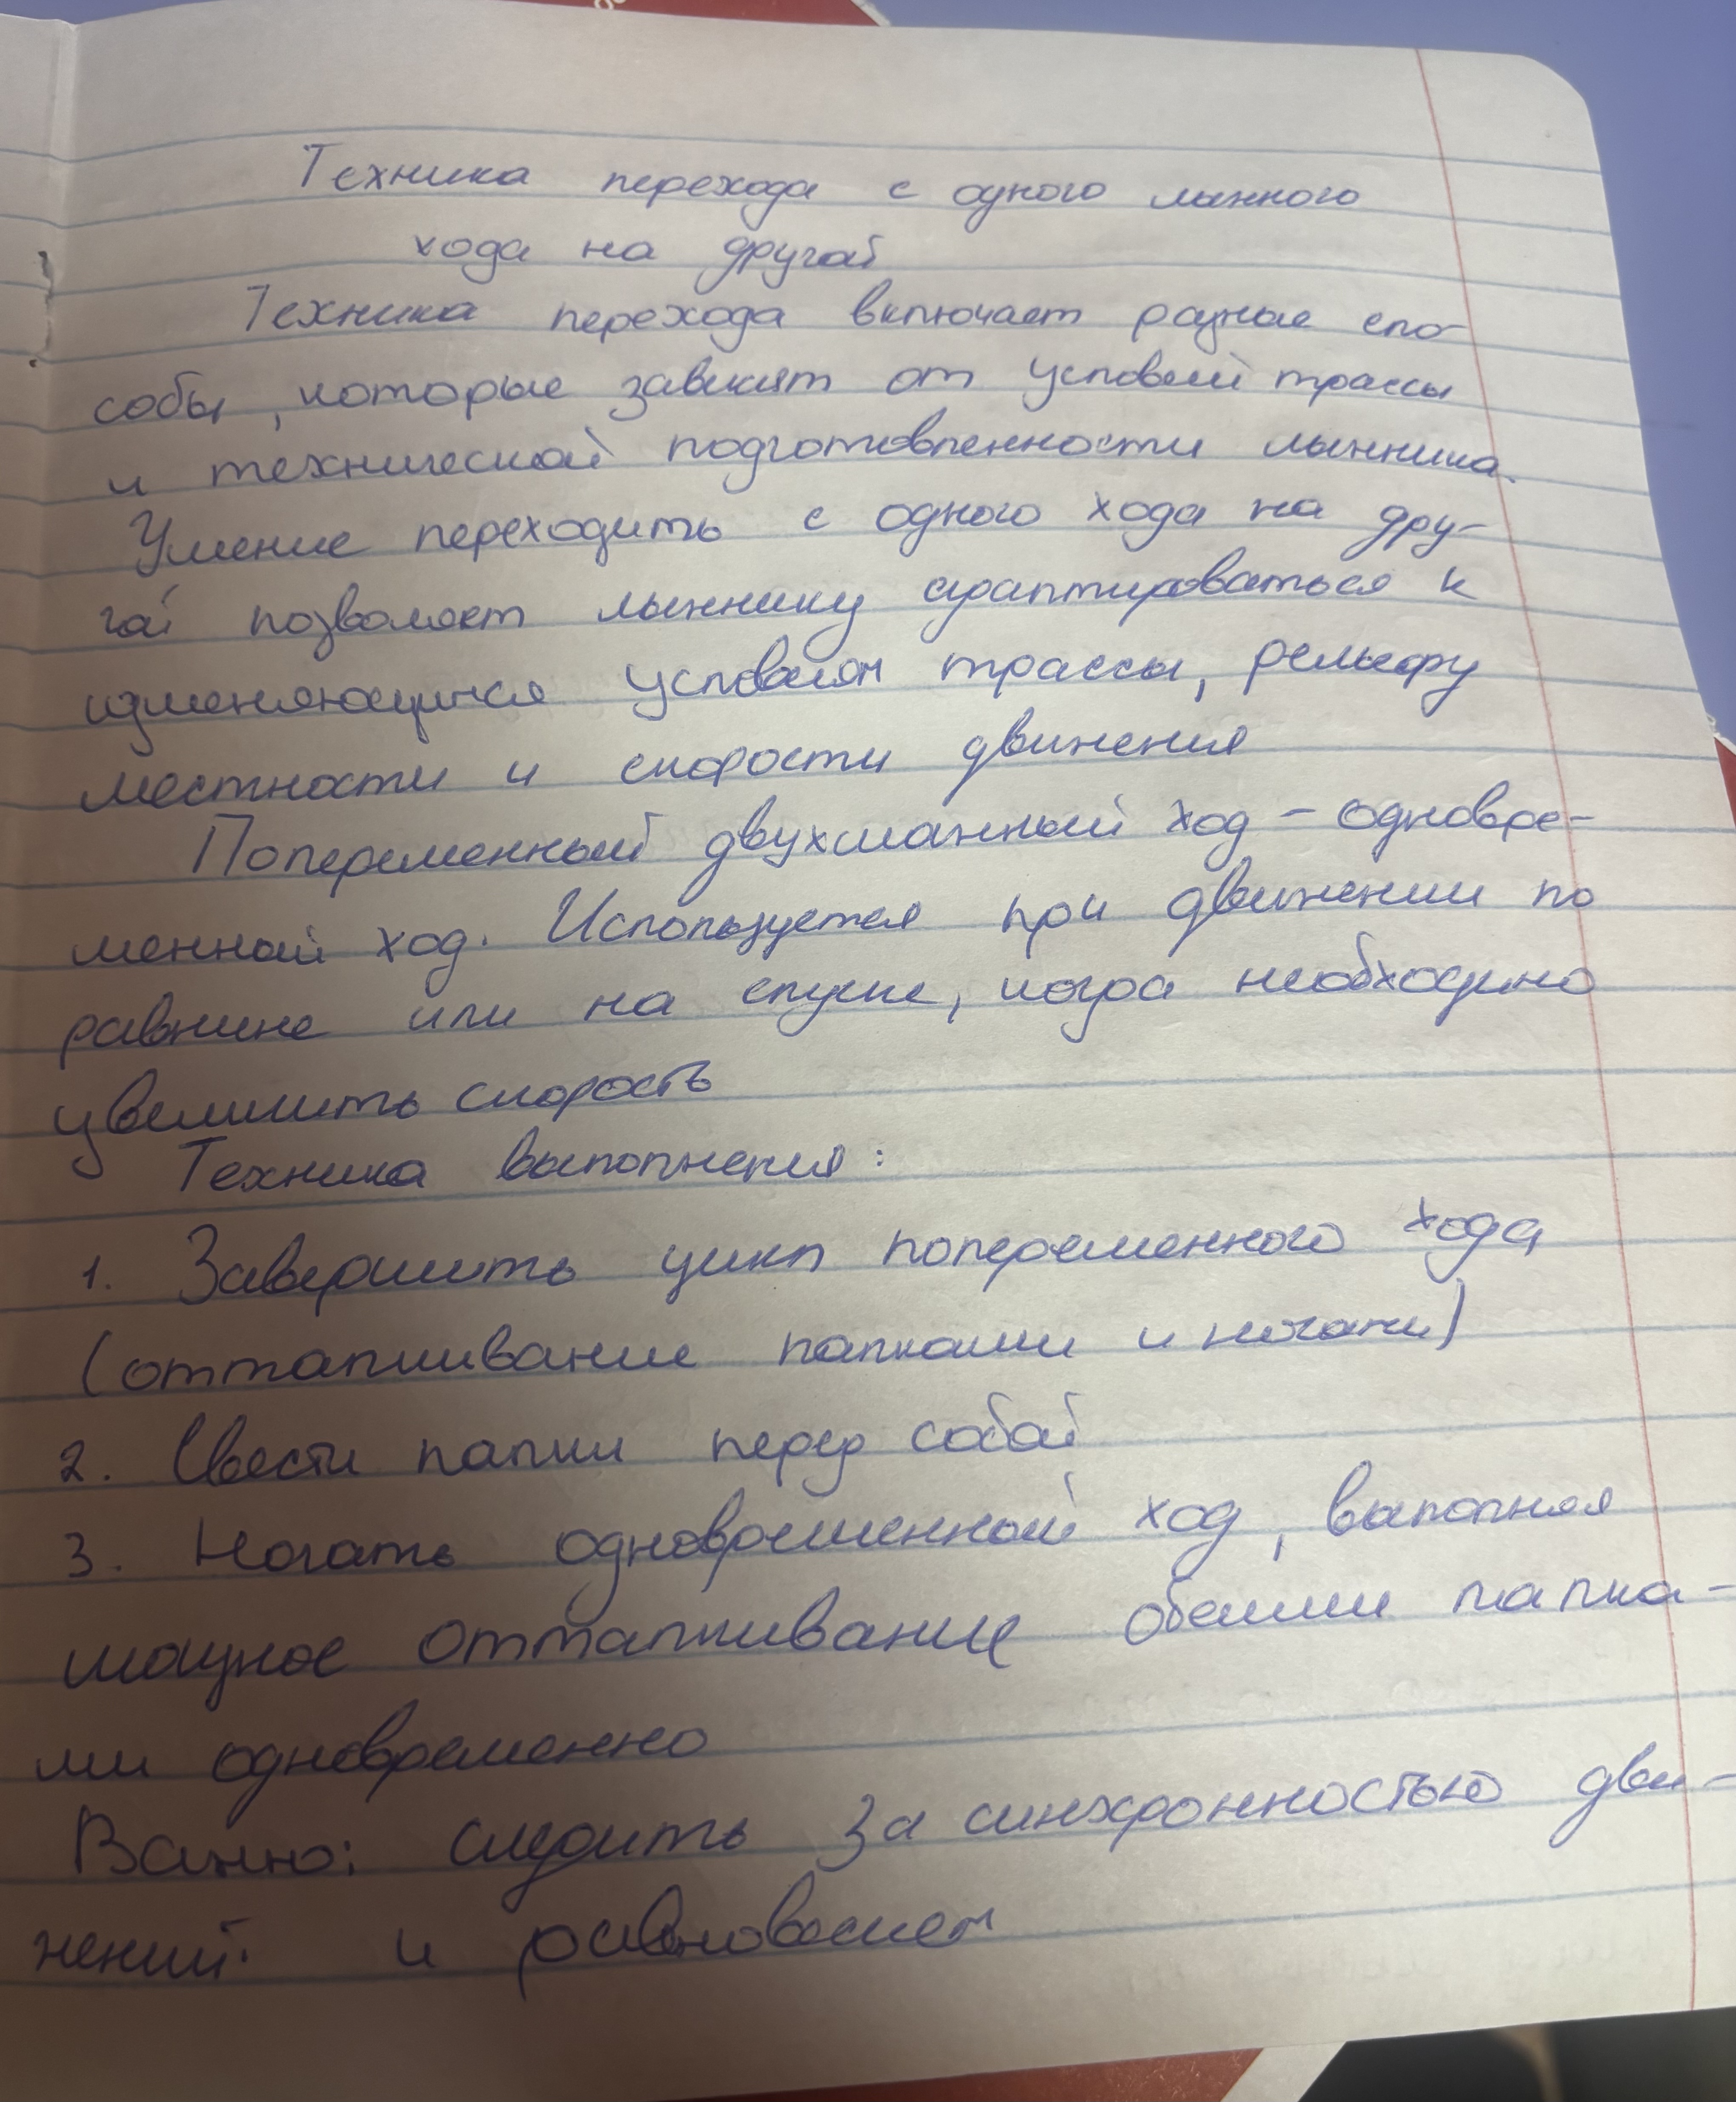 Техника перехода с одного лыжного
хода на другой
Техника перехода включает разные спо-
собы, которые зависят от условий трассы
и технической подготовленности лыжника.
Умение переходить с одного хода на дру-
гой позволяет лыжнику адаптироваться к
изменяющимся условиям трассы, рельефу
местности и скорости движения
Попеременный двухшажный ход - одновре-
менный ход. Используется при движении по
равнине или на спуске, когда необходимо
увеличить скорость
Техника выполнения:
1. Завершить цикл попеременного хода
(отталкивание палками и ногами)
2. Свести палки перед собой
3. Начать одновременный ход, выполняя
мощное отталкивание обеими палка-
ми одновременно
Важно: следить за синхронностью дви-
жений. и равновесием